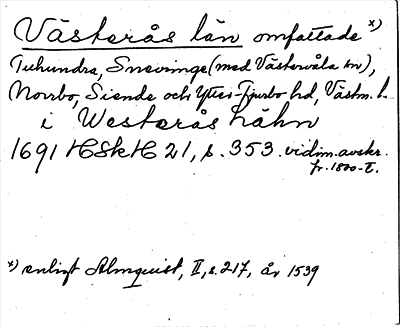 Västerås län omfattade x)
Tuhundra, Snevringe (med Västervåla sn),
Norrbo, Siende och Ytter-Tjurbo hd, Västm. l.
i Westerås nähn
1691 HSkH 21, s. 353. vidim. avskr.
fr. 1800-t.
x) enligt Almquist, II, s. 217, år 1539